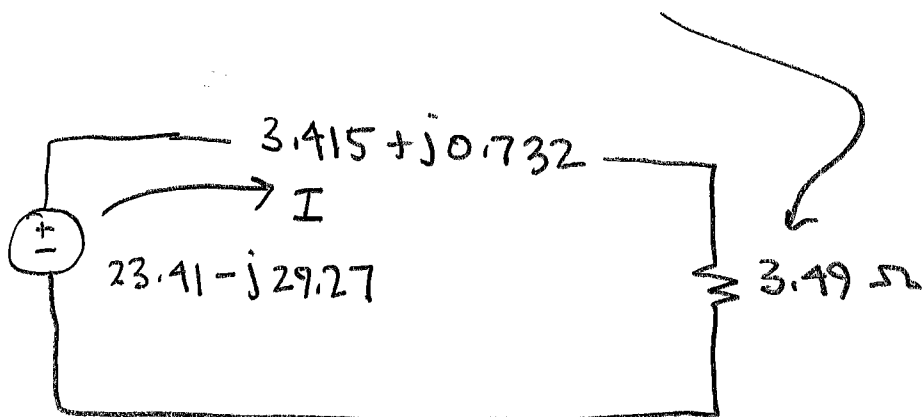 3.415 + j0.732
I
+
-
23.41 - j29.27
3.49 Ω